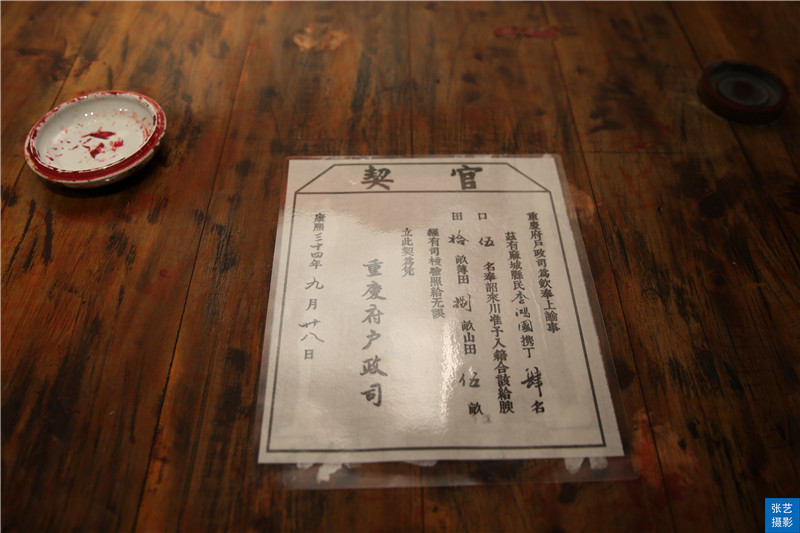 官契
重慶府戶政司爲欽奉上諭事
茲有麻城縣民李鴻國攜丁肆名
口伍名奉詔來川准予入籍合該給腴
田拾畝薄田捌畝山田伍畝
經有司檢驗照給无誤
立此契爲凭
重慶府户政司
康熙三十四年九月廿八日
张艺
摄影